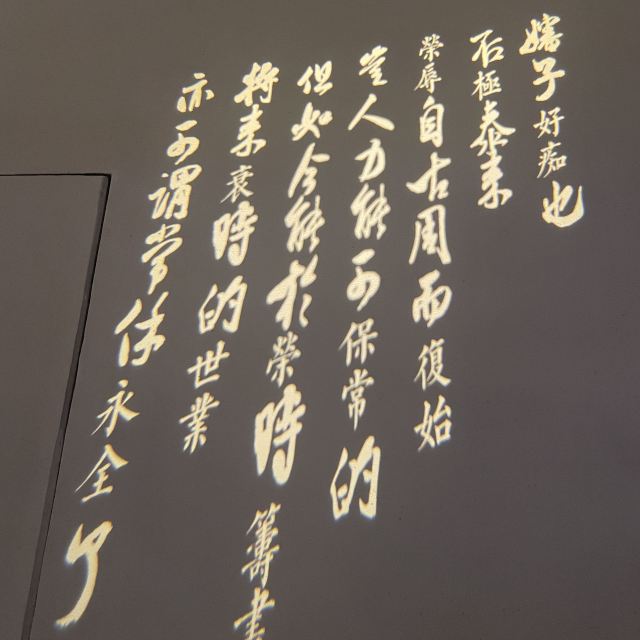 嬸子好痴也
否極泰來
榮辱自古周而復始
豈人力能可保常的
但如今能於榮時籌畫
將來衰時的世業
亦可謂常保永全了